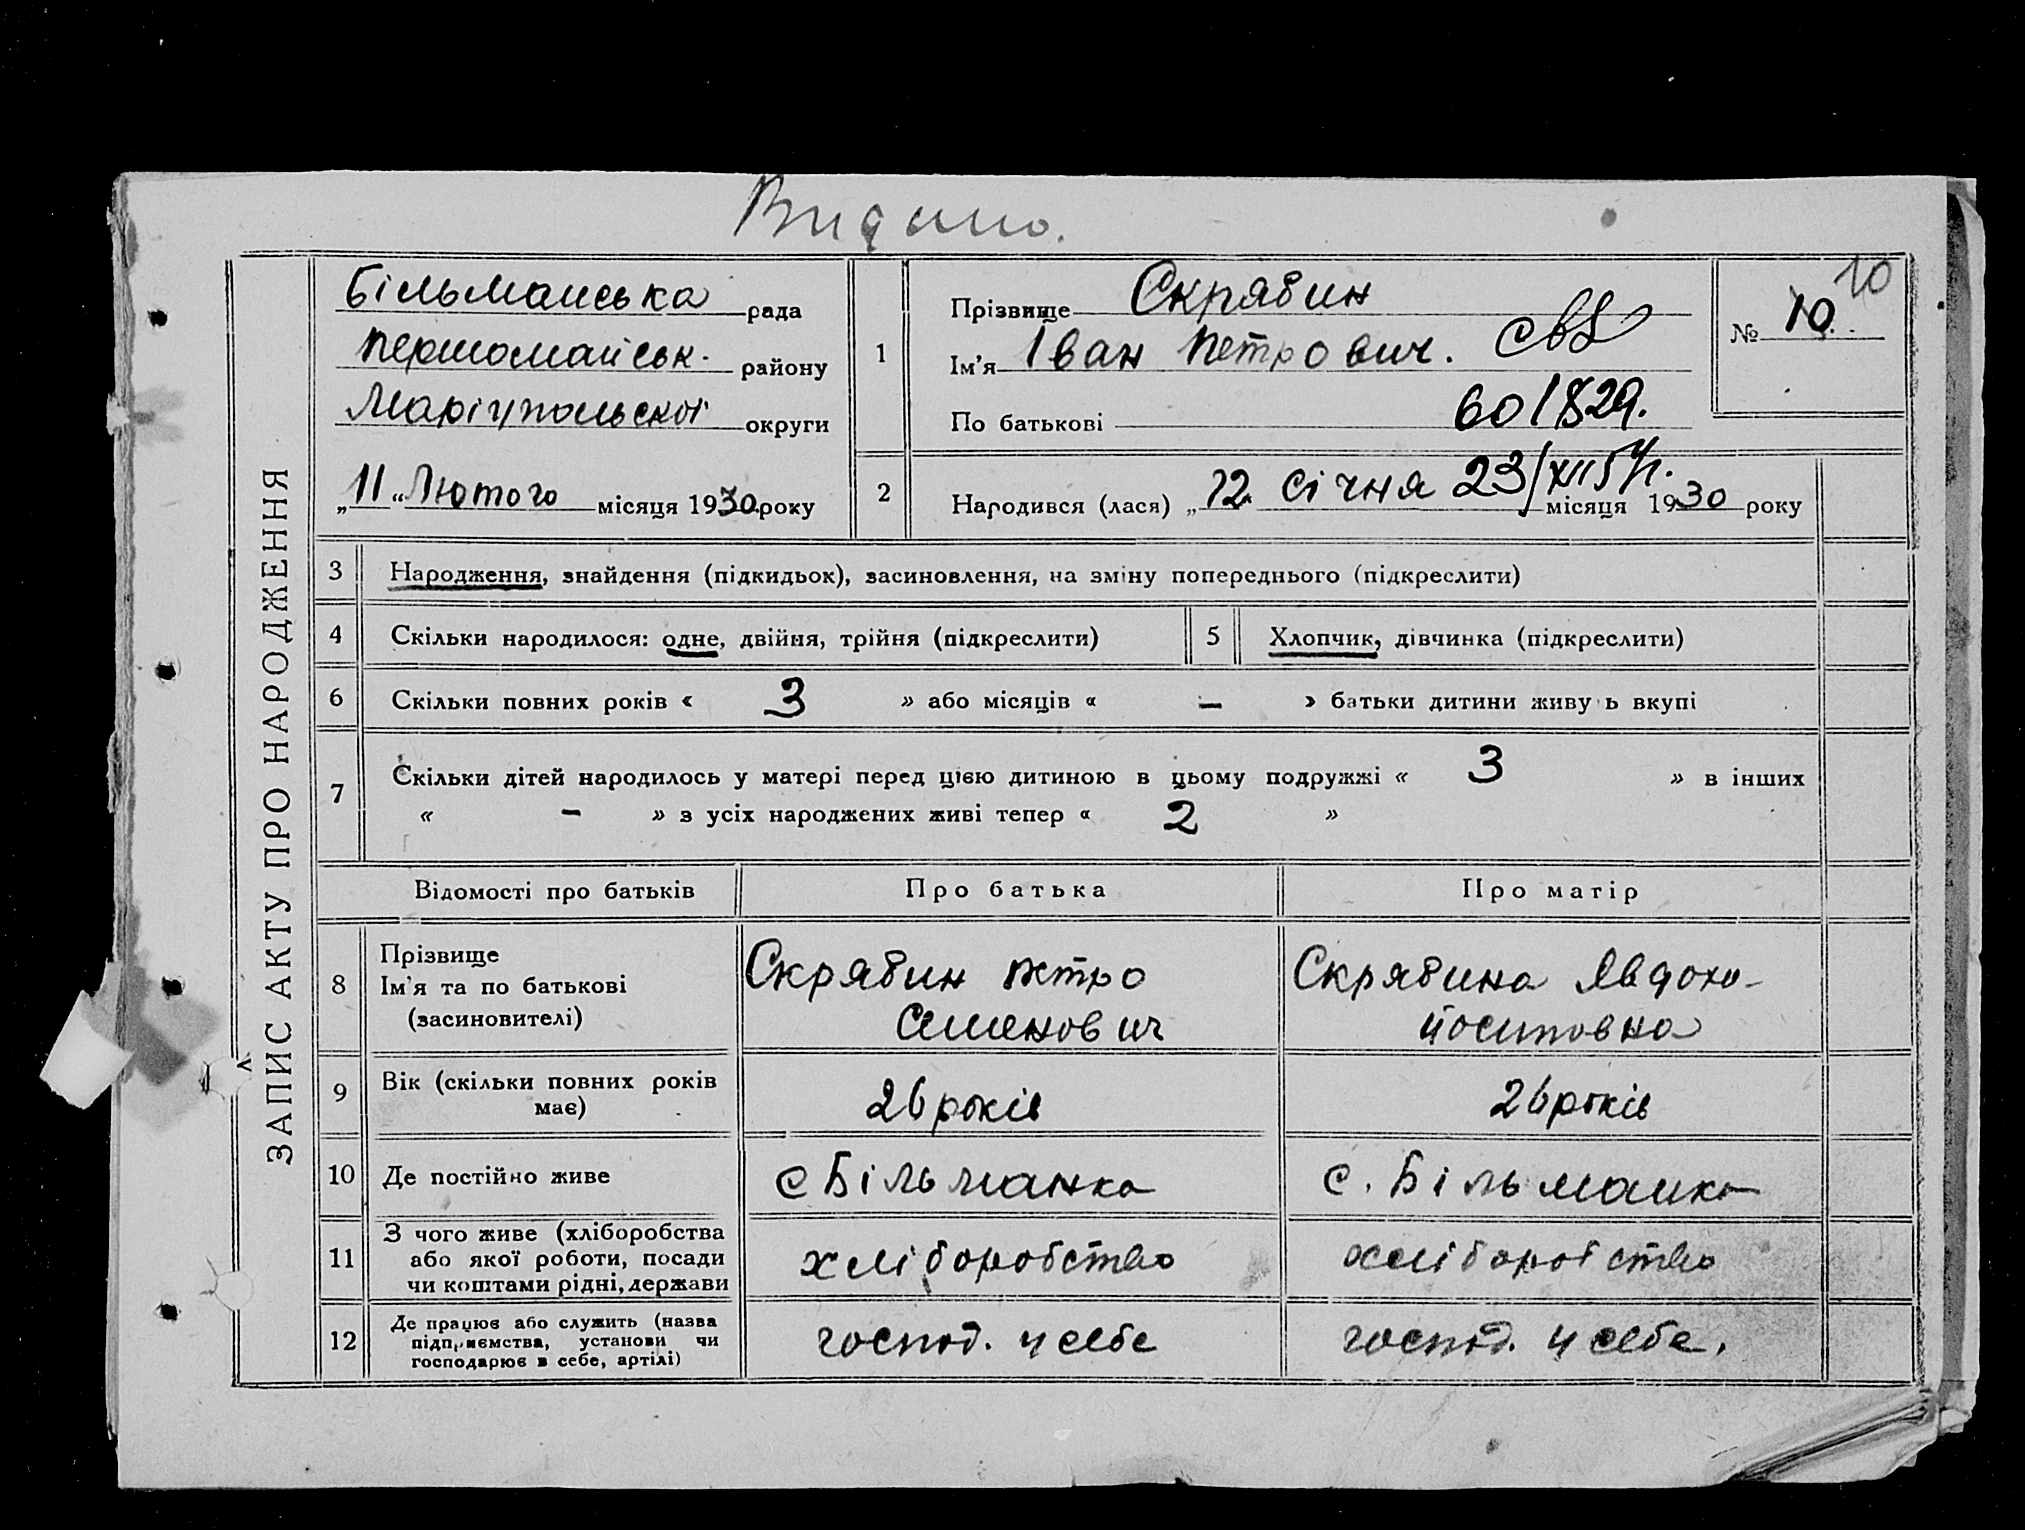 Видано.
ЗАПИС АКТУ ПРО НАРОДЖЕННЯ
Більманська рада
Першомайськ. району
Маріупольської округи
„11“ Лютого місяця 1930 року
1
Прізвище Скрябин
Ім'я Іван Петрович. св
По батькові 601829.
№ 10.
10
2
Народився (лася) „12. січня 23/XII 5 р. місяця 1930 року
3 Народження, знайдення (підкидьок), засиновлення, на зміну попереднього (підкреслити)
4 Скільки народилося: одне, двійня, трійня (підкреслити)
5 Хлопчик, дівчинка (підкреслити)
6 Скільки повних років « 3 » або місяців « – » батьки дитини живу ь вкупі
7 Скільки дітей народилось у матері перед цією дитиною в цьому подружжі « 3 » в інших
« – » з усіх народжених живі тепер « 2 »
Відомості про батьків Про батька Про матір
8
Прізвище
Ім'я та по батькові
(засиновителі)
Скрябин Петро
Семенович
Скрябина Явдоко-
йосиповна
9
Вік (скільки повних років
має)
26 років
26 років
10 Де постійно живе
с Більманка
с. Більманка
11
З чого живе (хліборобства
або якої роботи, посади
чи коштами рідні, держави
хліборобство
хліборобство
12
Де працює або служить (назва
підприємства, установи чи
господарює в себе, артілі)
господ. у себе
господ. у себе.